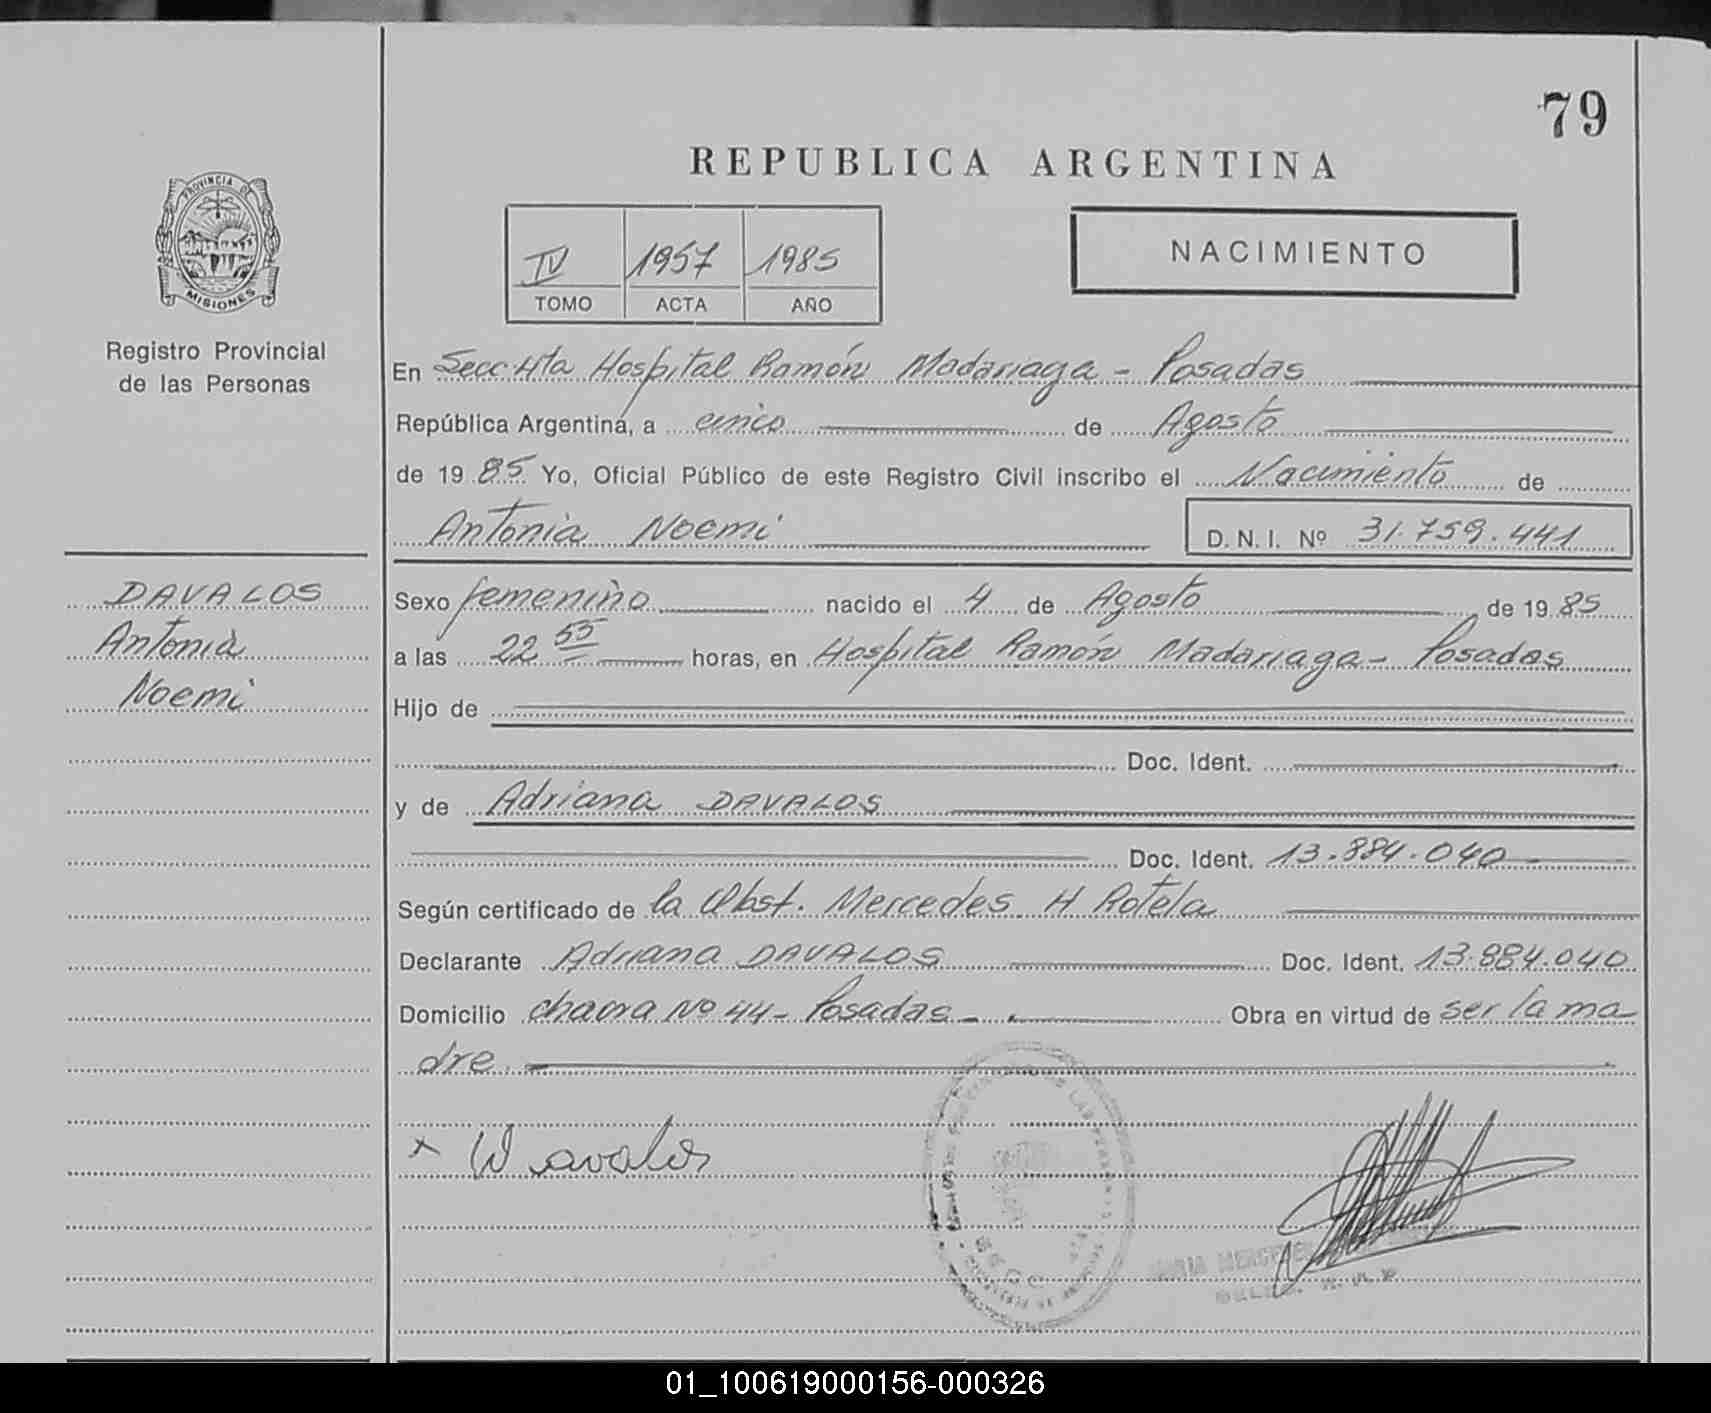 79
REPUBLICA ARGENTINA
PROVINCIA DE
MISIONES
Registro Provincial
de las Personas
IV 1957 1985
TOMO ACTA AÑO
NACIMIENTO
En Secc. 4ta Hospital Ramón Madariaga - Posadas
República Argentina, a cinco de Agosto
de 19 85 Yo, Oficial Público de este Registro Civil inscribo el Nacimiento de
Antonia Noemi D. N. I. Nº 31.759.441
DAVALOS
Antonia
Noemi
Sexo femenino nacido el 4 de Agosto de 19 85
a las 22 55 horas, en Hospital Ramón Madariaga - Posadas
Hijo de
Doc. Ident.
y de Adriana DAVALOS
Doc. Ident. 13.884.040
Según certificado de la Obst. Mercedes H Rotela
Declarante Adriana DAVALOS Doc. Ident. 13.884.040
Domicilio chacra Nº 44 - Posadas - . Obra en virtud de ser la ma
dre.
01_100619000156-000326